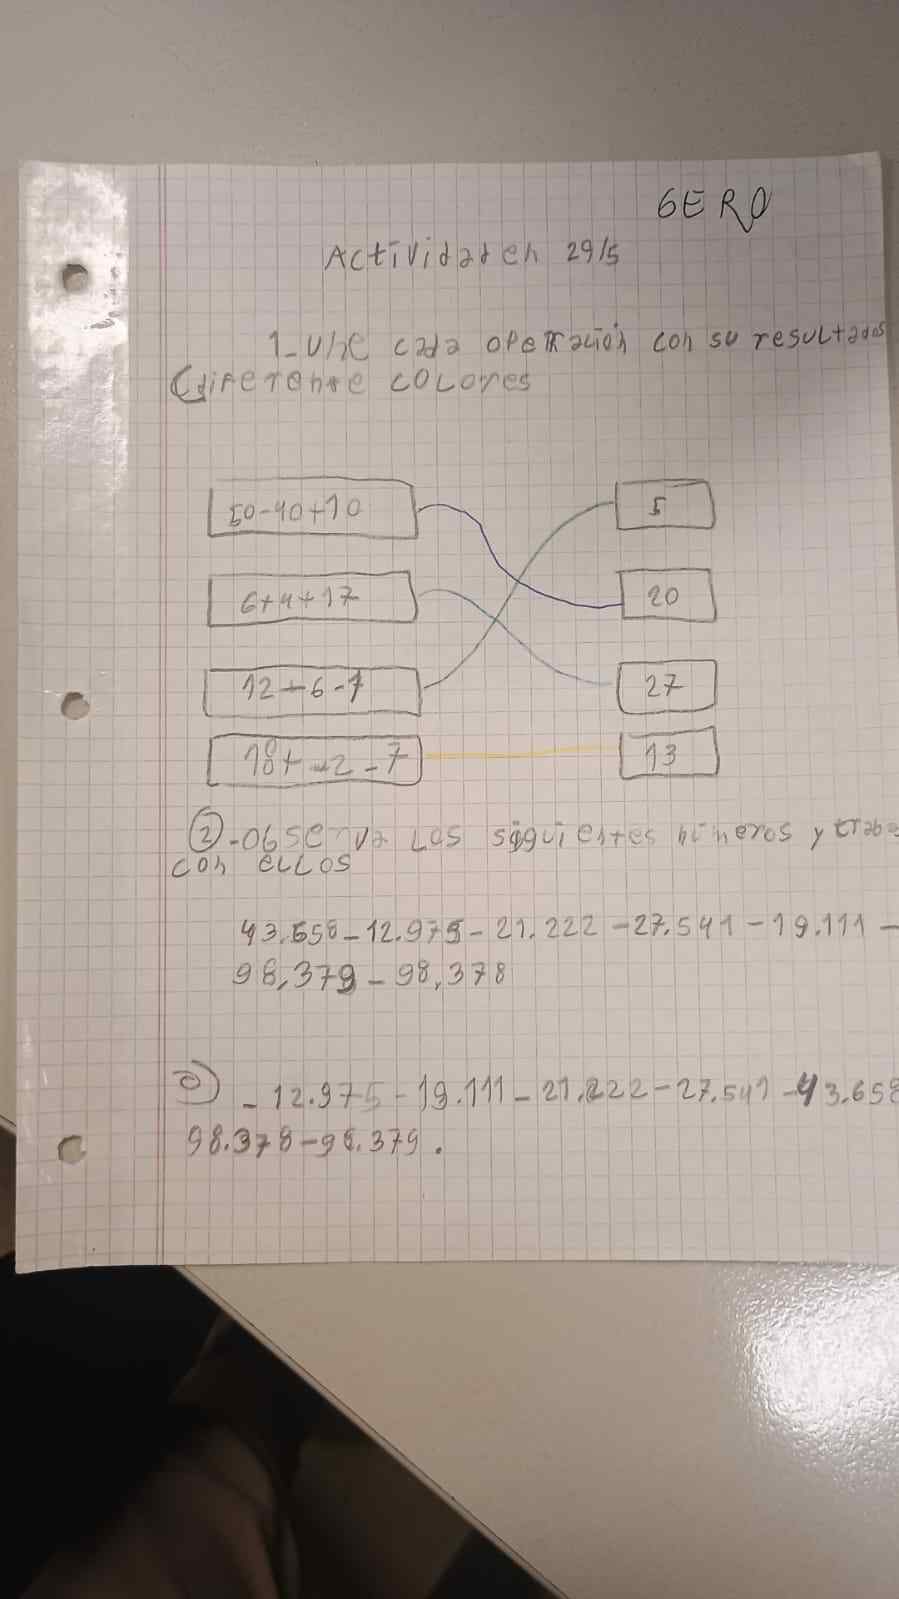 GERO
Actividad en 29/5
1-Une cada operación con su resultados
(diferente colores
50-40+10
5
6+4+17
20
12-6-1
27
18+-2-7
13
2-Observa los siguientes números y traba
con ellos
43.658-12.975-21.222-27.541-19.111-
98,379-98,378
-12.975-19.111-21.222-27.541-43.658
98.378-98.379.